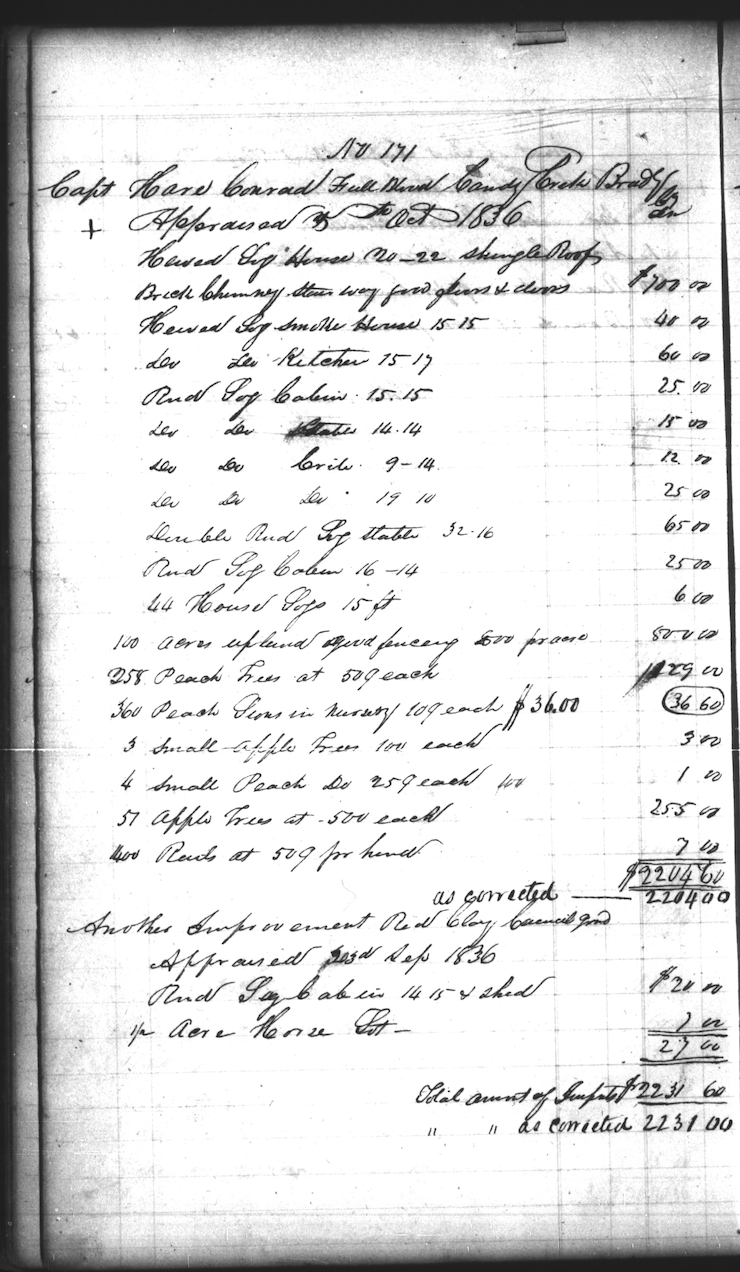 No 171
Capt Hare Conrad Full Blood Candy Creek Brad
+ Appraised th Oct 1836
Hewed Log House 20-22 Shingle Roof
Brick Chimney Stair way good floors & doors $700 00
Hewed Log Smoke House 15 15 40 00
Do Do Kitchen 15 17 60 00
Rnd Log Cabin 15.15 25.00
Do Do Stable 14.14 15 00
Do Do Crib 9-14 12 00
Do Do Do 19 10 25 00
Double Rnd Log Stable 32.16 65 00
Rnd Log Cabin 16-14 25 00
44 House Logs 15 ft 6 00
100 acres upland good fencing 800 pr acre 800 00
258 Peach Trees at 50¢ each 129 00
360 Peach in Nursery 10¢ each $36.00 36 60
3 Small Apple Trees 100 each 3 00
4 Small Peach Do 25¢ each 100 1 00
51 Apple Trees at 500 each 255 00
1400 Rails at 50¢ pr hund 7 00
$2204 60
as corrected 2204 00
Another Improvement Red Clay Council grnd
Appraised 23rd Sep 1836
Rnd Log Cabin 14 15 & shed $20 00
1/2 Acre Horse Lot - 7 00
27 00
Total amnt of Impvts $2231 60
" " as corrected 2231 00